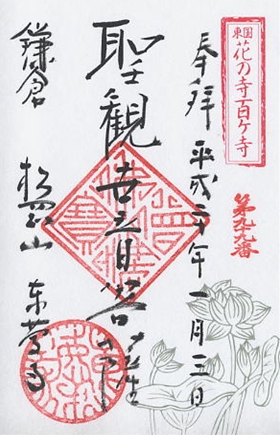 東国
花の寺百ヶ寺
第九十九番
奉拝 平成二十年一月三日
聖観世音菩薩
鎌倉
松岡山 東慶寺
佛法僧寶